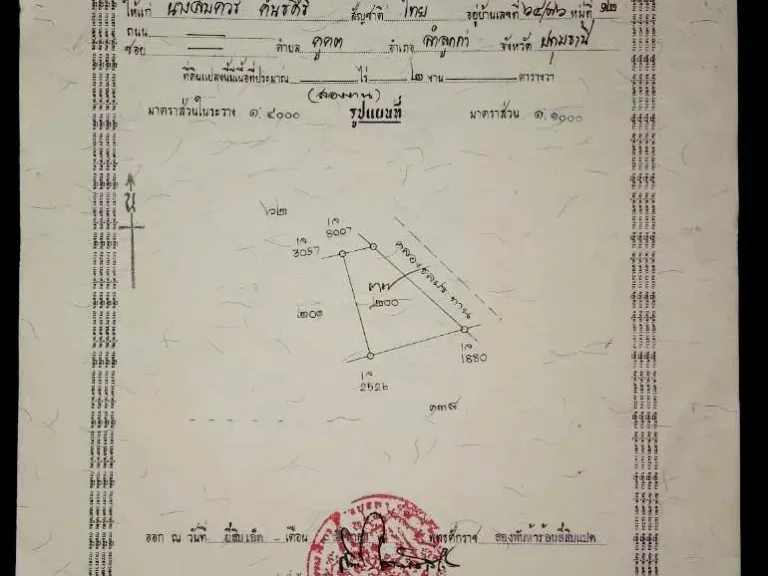 ให้แก่ นางสมควร สัญชาติ ไทย อยู่บ้านเลขที่ หมู่ที่ ๑๒
ถนน
ซอย ตำบล คูคต อำเภอ ลำลูกกา จังหวัด ปทุมธานี
ที่ดินแปลงนี้มีเนื้อที่ประมาณ ไร่ ๒ งาน ตารางวา
(สองงาน)
มาตราส่วนในระวาง ๑:๔๐๐๐ รูปแผนที่ มาตราส่วน ๑:๑๐๐๐
น
๖๒
8007
3057
คลองชลประทาน
๒๐๐
๒๐๑
1880
2526
๑๓๘
ออก ณ วันที่ ยี่สิบเอ็ด เดือน พุทธศักราช สองพันห้าร้อยสี่สิบแปด